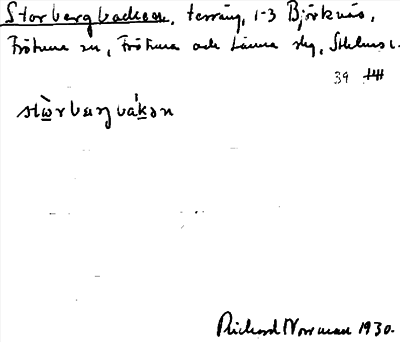 Storbergbacken, terräng, 1-3 Björknäs,
Frötuna sn, Frötuna och Länna skg, Sthlms l.
39
stὼrbærjbák̲ən
Richard Norrman 1930.